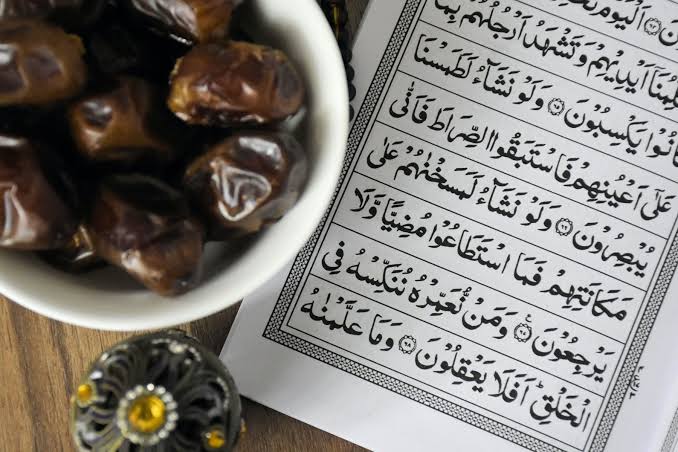 اَلْيَوْمَ
اَيْدِيْهِمْ وَتَشْهَدُ اَرْجُلُهُمْ بِمَا
كَانُوْا يَكْسِبُوْنَ ۝٦٥ وَلَوْ نَشَآءُ لَطَمَسْنَا
عَلٰۤى اَعْيُنِهِمْ فَاسْتَبَقُوا الصِّرَاطَ فَاَنّٰى
يُبْصِرُوْنَ ۝٦٦ وَلَوْ نَشَآءُ لَمَسَخْنٰهُمْ عَلٰى
مَكَانَتِهِمْ فَمَا اسْتَطَاعُوْا مُضِيًّا وَّلَا
يَرْجِعُوْنَ ۝٦٧ وَمَنْ نُّعَمِّرْهُ نُنَكِّسْهُ فِى
الْخَلْقِ ؕ اَفَلَا يَعْقِلُوْنَ ۝٦٨ وَمَا عَلَّمْنٰهُ